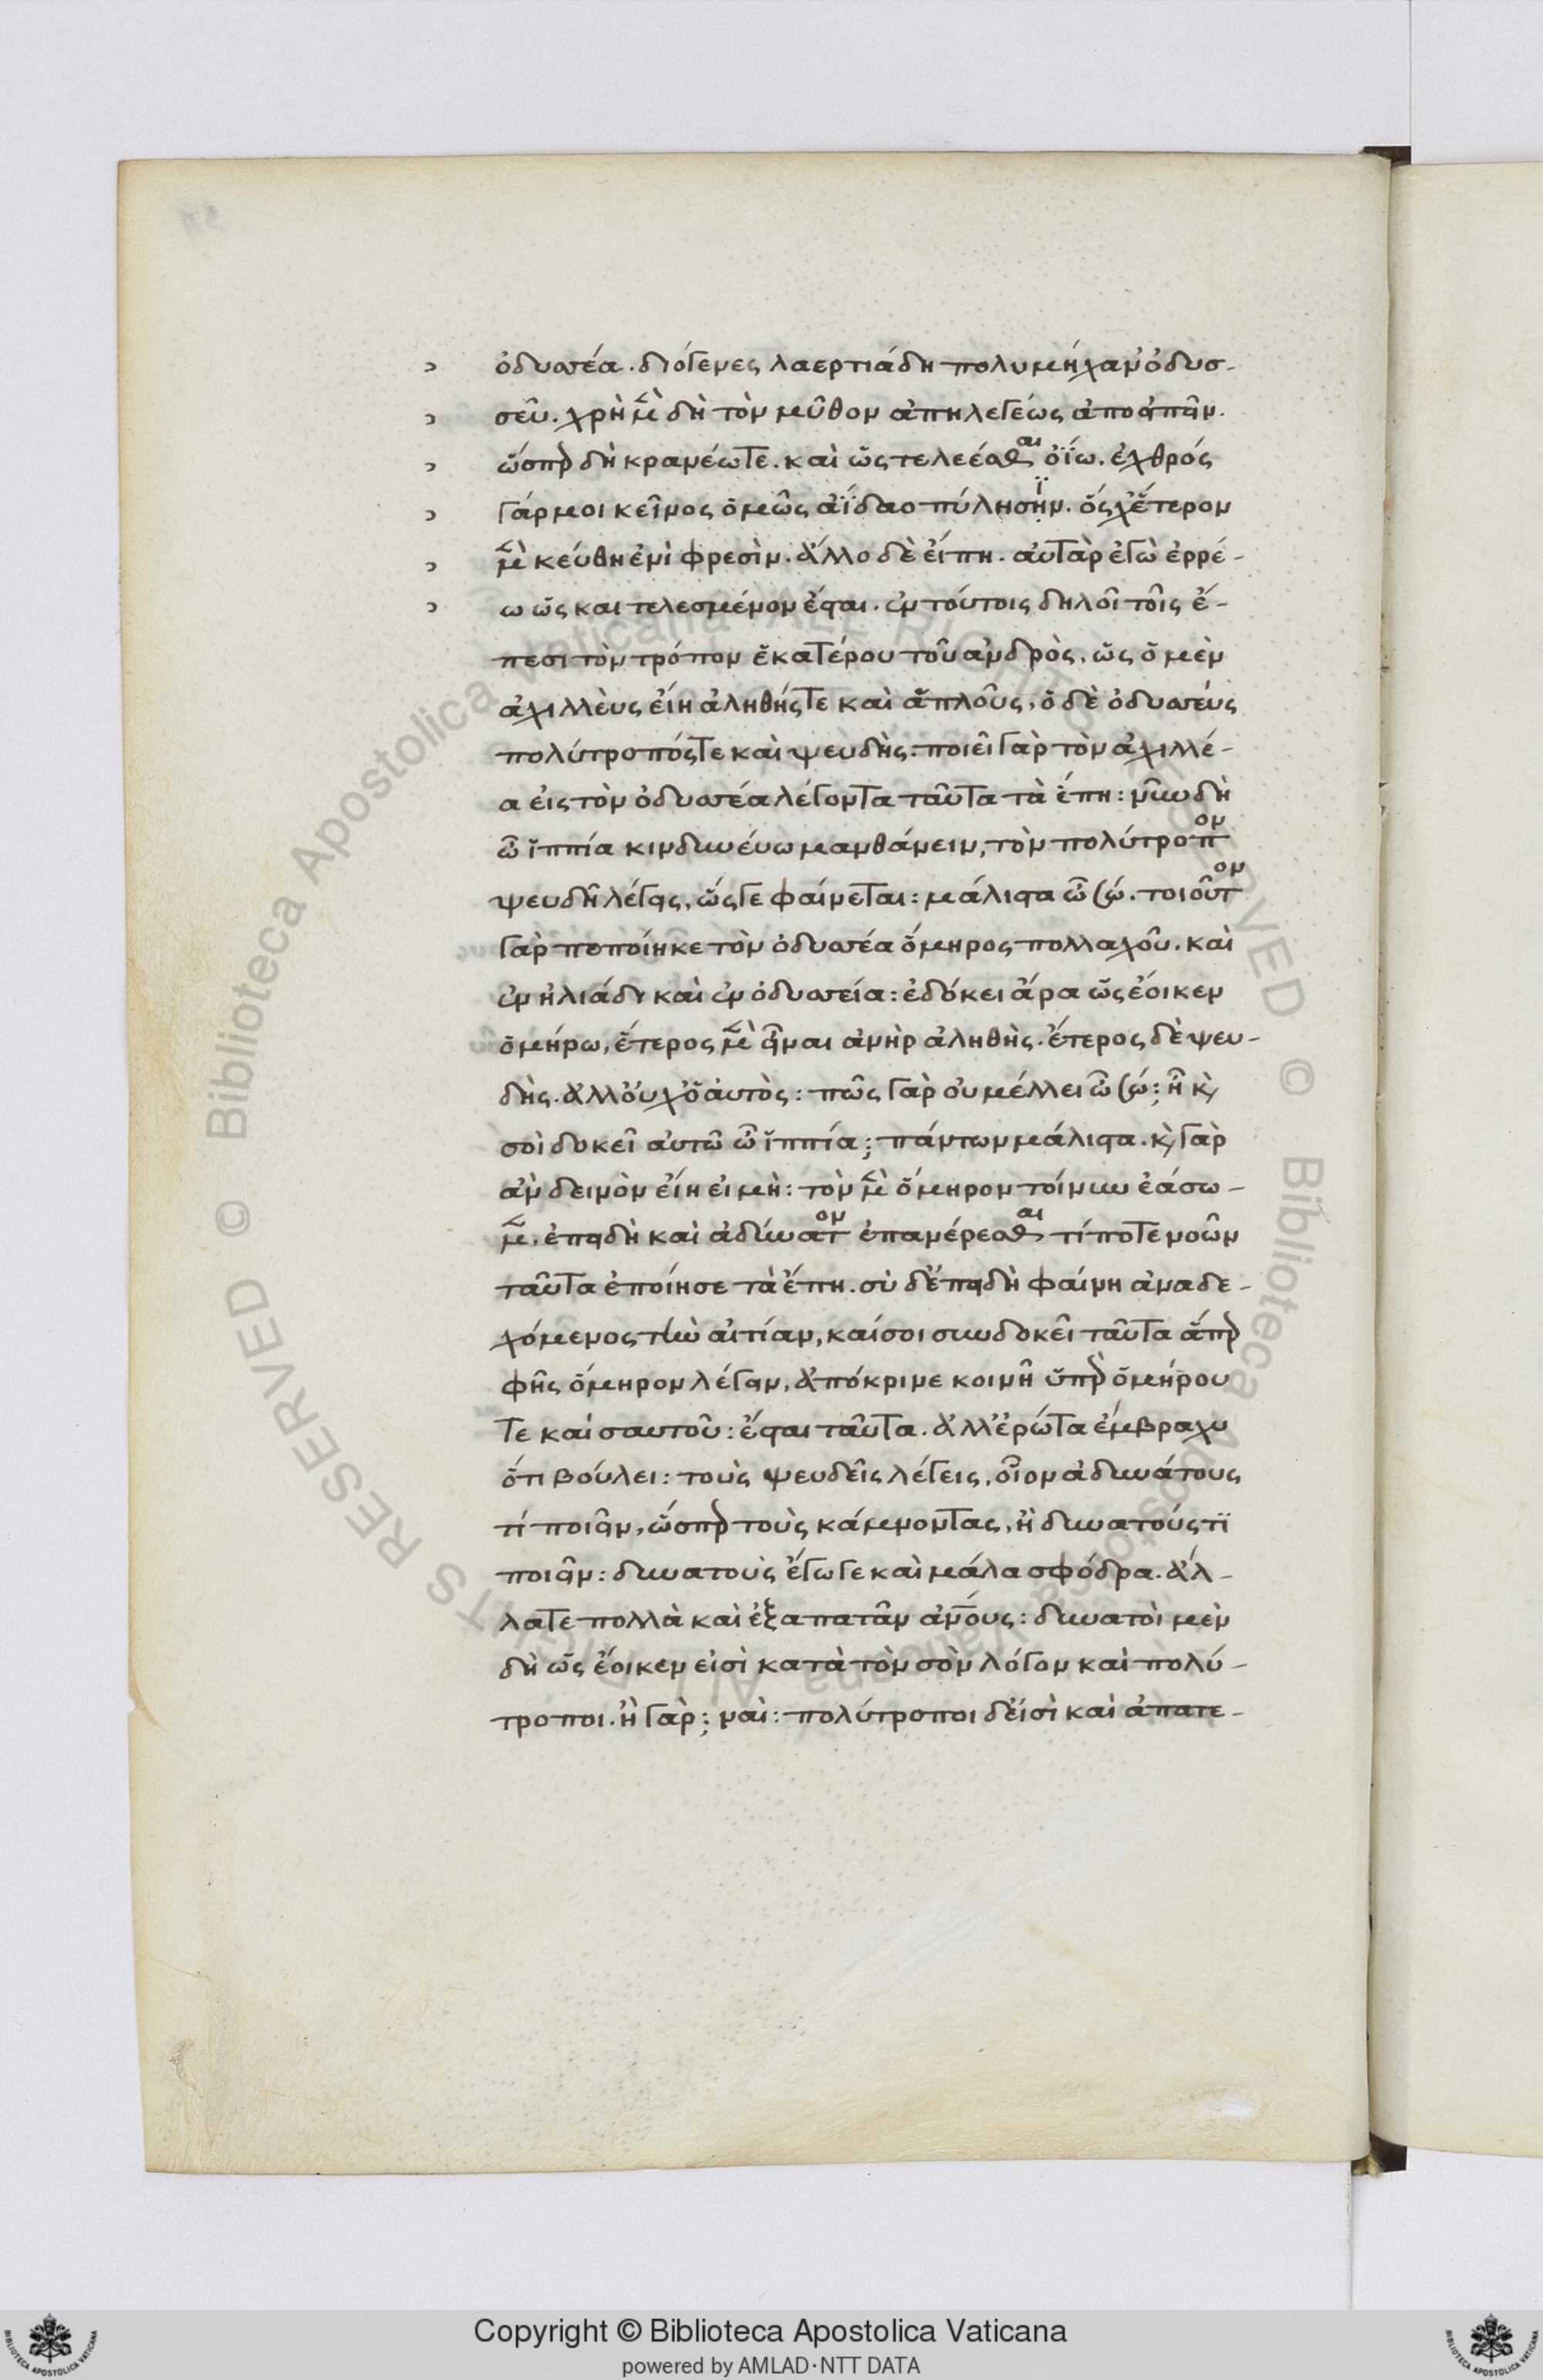 ὀδυσσέα. διόγενες λαερτιάδη πολυμήχαν' ὀδυσ-
σεῦ. χρὴ μὲν δὴ τὸν μῦθον ἀπηλεγέως ἀποειπεῖν.
ὥσπερ δὴ κρανέω τε. καὶ ὡς τελέεσθαι ὀΐω. ἐχθρός
γάρ μοι κεῖνος ὁμῶς ἀΐδαο πύλησιν. ὅς χ' ἕτερον
μὲν κεύθη ἐνὶ φρεσὶν. ἄλλο δὲ εἴπη. αὐτὰρ ἐγὼ ἐρρέ-
ω ὡς και τελεσμένον ἔσται. ἐν τούτοις δηλοῖ τοῖς ἔ-
πεσι τὸν τρόπον ἑκατέρου τοῦ ἀνδρὸς, ὡς ὁ μὲν
ἀχιλλεὺς εἴη ἀληθής τε καὶ ἁπλοῦς, ὁ δὲ ὀδυσσεύς
πολύτροπός τε καὶ ψευδὴς: ποιεῖ γὰρ τὸν ἀχιλλέ-
α εἰς τὸν ὀδυσσέα λέγοντα ταῦτα τὰ ἔπη: νῦν δὴ
ὦ ἱππία κινδυνεύω μανθάνειν, τὸν πολύτροπον
ψευδῆ λέγεις, ὥς γε φαίνεται: μάλιστα ὦ σώ. τοιοῦτον
γὰρ πεποίηκε τὸν ὀδυσσέα ὅμηρος πολλαχοῦ. καὶ
ἐν ἠλιάδι καὶ ἐν ὀδυσσεία: ἐδόκει ἄρα ὡς ἔοικεν
ὁμήρω, ἕτερος μὲν εἶναι ἀνὴρ ἀληθὴς. ἕτερος δὲ ψευ-
δὴς. ἀλλ' οὐχ ὁ ἀυτὸς: πῶς γὰρ οὐ μέλλει ὦ σώ: ἦ κὶ
σοὶ δοκεῖ αὐτῶ ὦ ἱππία; πάντων μάλιστα. κὶ γὰρ
ἀν δεινὸν εἴη εἰ μὴ: τὸν μὲν ὅμηρον τοίνυν ἐάσω-
μεν, ἐπειδὴ καὶ ἀδύνατον ἐπανέρεσθαι τί ποτε νοῶν
ταῦτα ἐποίησε τὰ ἔπη. σὺ δ' ἐπειδὴ φαίνη ἀναδε-
χόμενος τὴν αἰτίαν, καί σοι συνδοκεῖ ταῦτα ἅπερ
φῆς ὅμηρον λέγειν, ἀπόκρινε κοινῆ ὑπὲρ ὁμήρου
τε καὶ σαυτοῦ: ἔσται ταῦτα. ἀλλ' ἐρώτα ἔμβραχυ
ὅτι βούλει: τοὺς ψευδεῖς λέγεις, οἷον ἀδυνάτους
τί ποιεῖν, ὥσπερ τοὺς κάμνοντας, ἢ δυνατούς τϊ
ποιεῖν: δυνατοὺς ἔγωγε καὶ μάλα σφόδρα. ἄλ-
λα τε πολλὰ καὶ ἐξαπατᾶν ἀνους: δυνατοὶ μὲν
δὴ ὡς ἔοικεν εἰσὶ κατὰ τὸν σὸν λόγον καὶ πολύ-
τροποι. ἢ γὰρ; ναὶ: πολύτροποι δ' εἰσὶ καὶ ἀπατε-
Copyright © Biblioteca Apostolica Vaticana
powered by AMLAD·NTT DATA